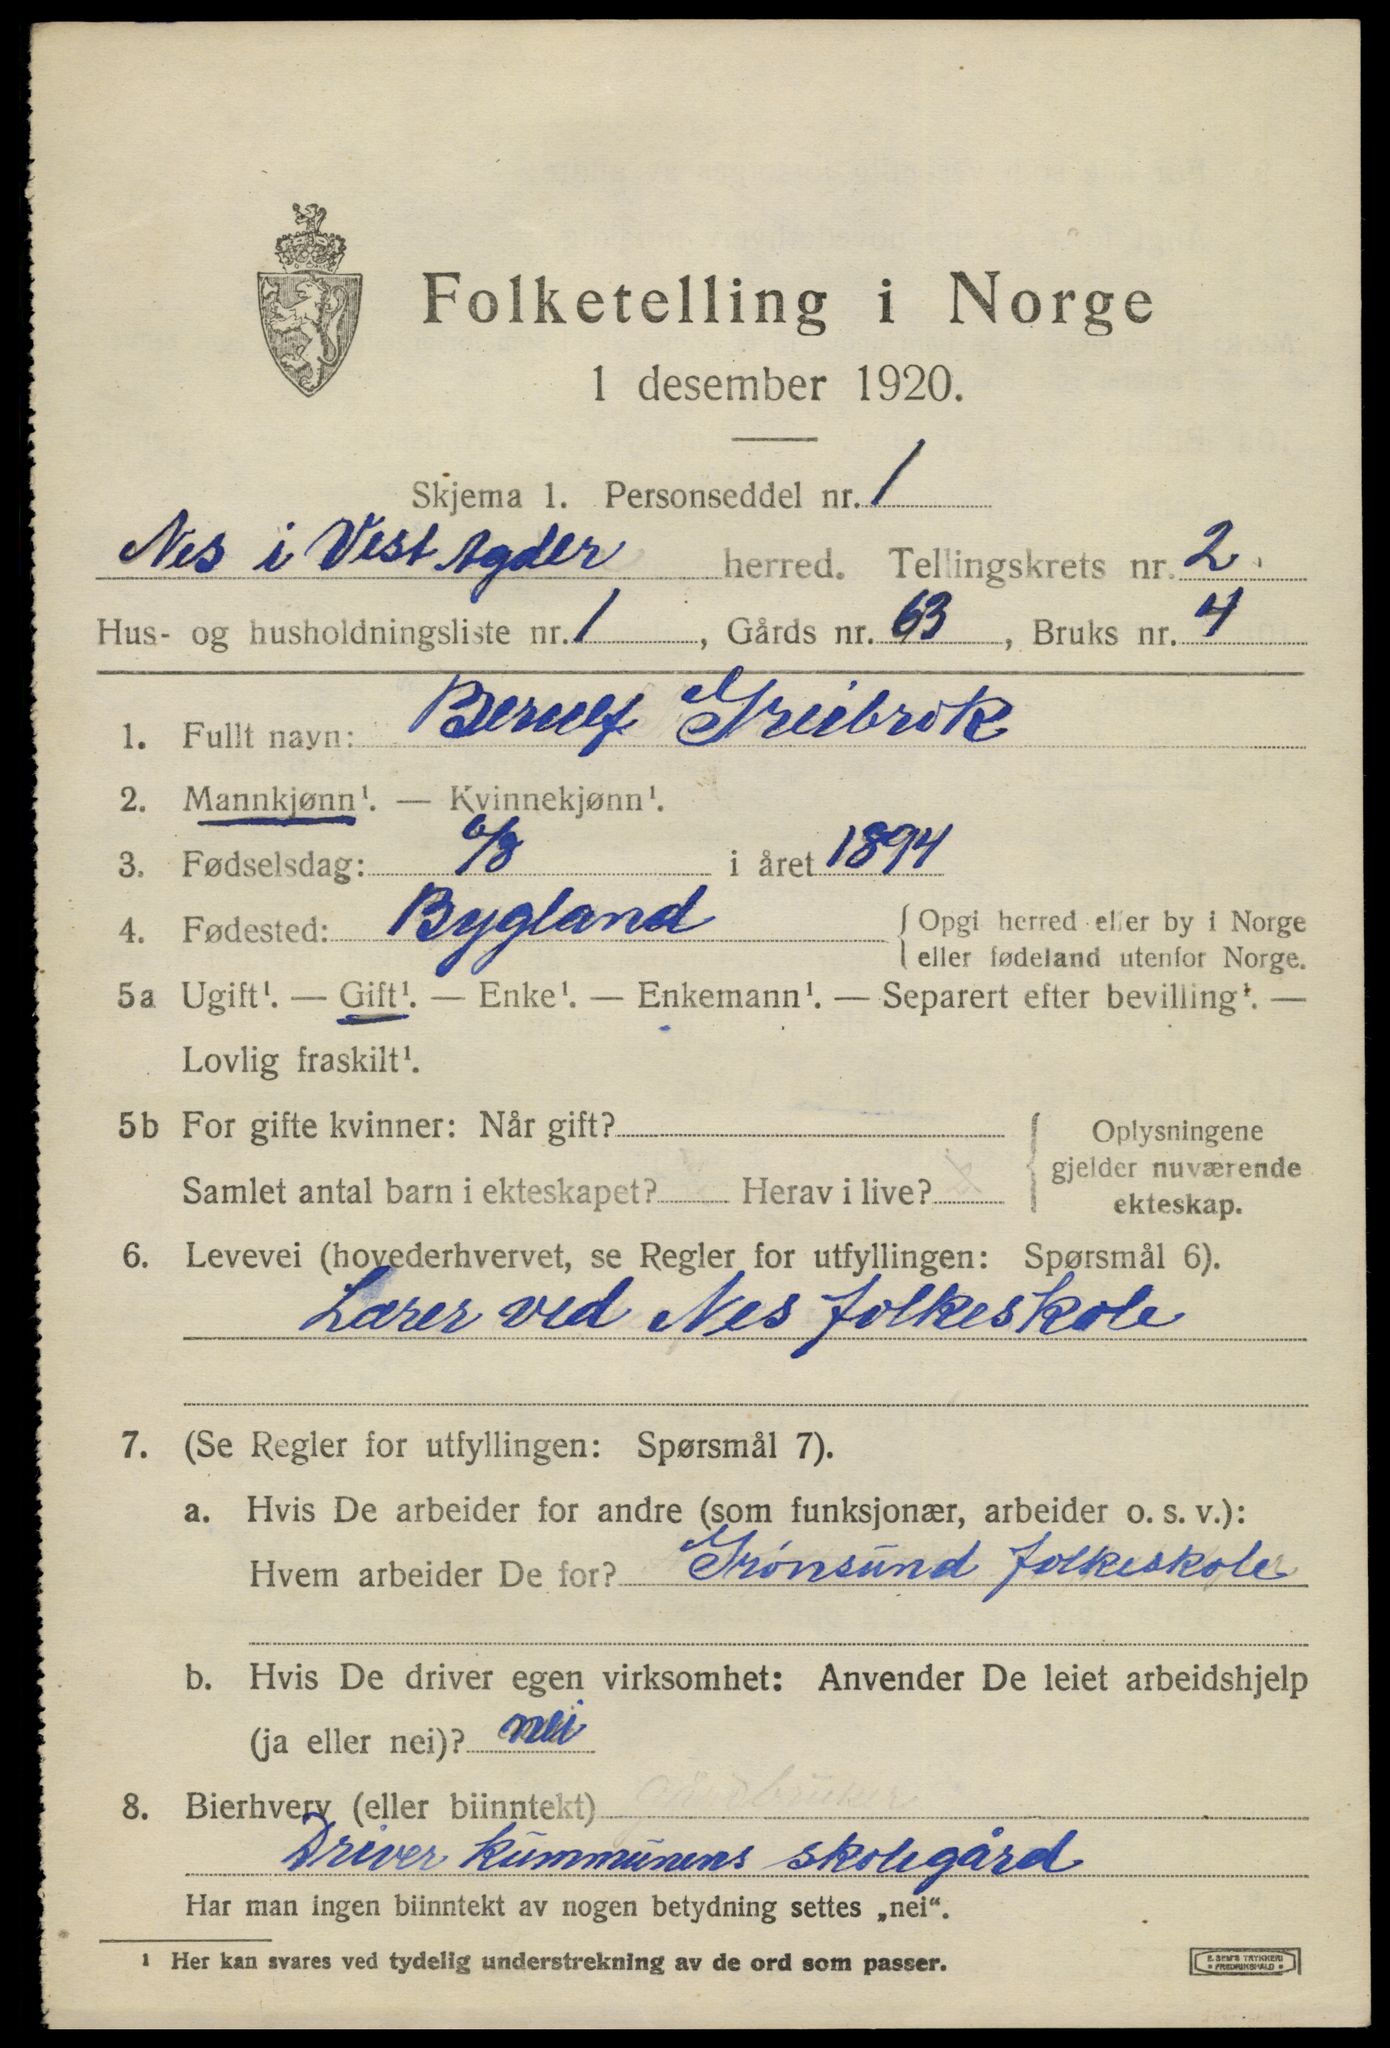 Folketelling i Norge
1 desember 1920.
Skjema 1. Personseddel nr. 1
Nes i Vest Agder herred. Tellingskrets nr. 2
Hus- og husholdningsliste nr. 1, Gårds nr. 63, Bruks nr. 4
1. Fullt navn: Greibrok
2. Mannkjønn¹. — Kvinnekjønn¹.
3. Fødselsdag: 6/8 i året 1894
4. Fødested: Bygland { Opgi herred eller by i Norge
eller fødeland utenfor Norge.
5a Ugift¹. — Gift¹. — Enke¹. — Enkemann¹. — Separert efter bevilling¹. —
Lovlig fraskilt¹.
5b For gifte kvinner: Når gift?
Samlet antal barn i ekteskapet? Herav i live?
Oplysningene
gjelder nuværende
ekteskap.
6. Levevei (hovederhvervet, se Regler for utfyllingen: Spørsmål 6).
Lærer ved Nes folkeskole
7. (Se Regler for utfyllingen: Spørsmål 7).
a. Hvis De arbeider for andre (som funksjonær, arbeider o. s. v.):
Hvem arbeider De for? Grønsund folkeskole
b. Hvis De driver egen virksomhet: Anvender De leiet arbeidshjelp
(ja eller nei)? nei
8. Bierhverv (eller biinntekt) gårdbruker
Driver kummunens skolegård
Har man ingen biinntekt av nogen betydning settes „nei“.
¹ Her kan svares ved tydelig understrekning av de ord som passer.
E. SEM'S TRYKKERI
FREDRIKSHALD